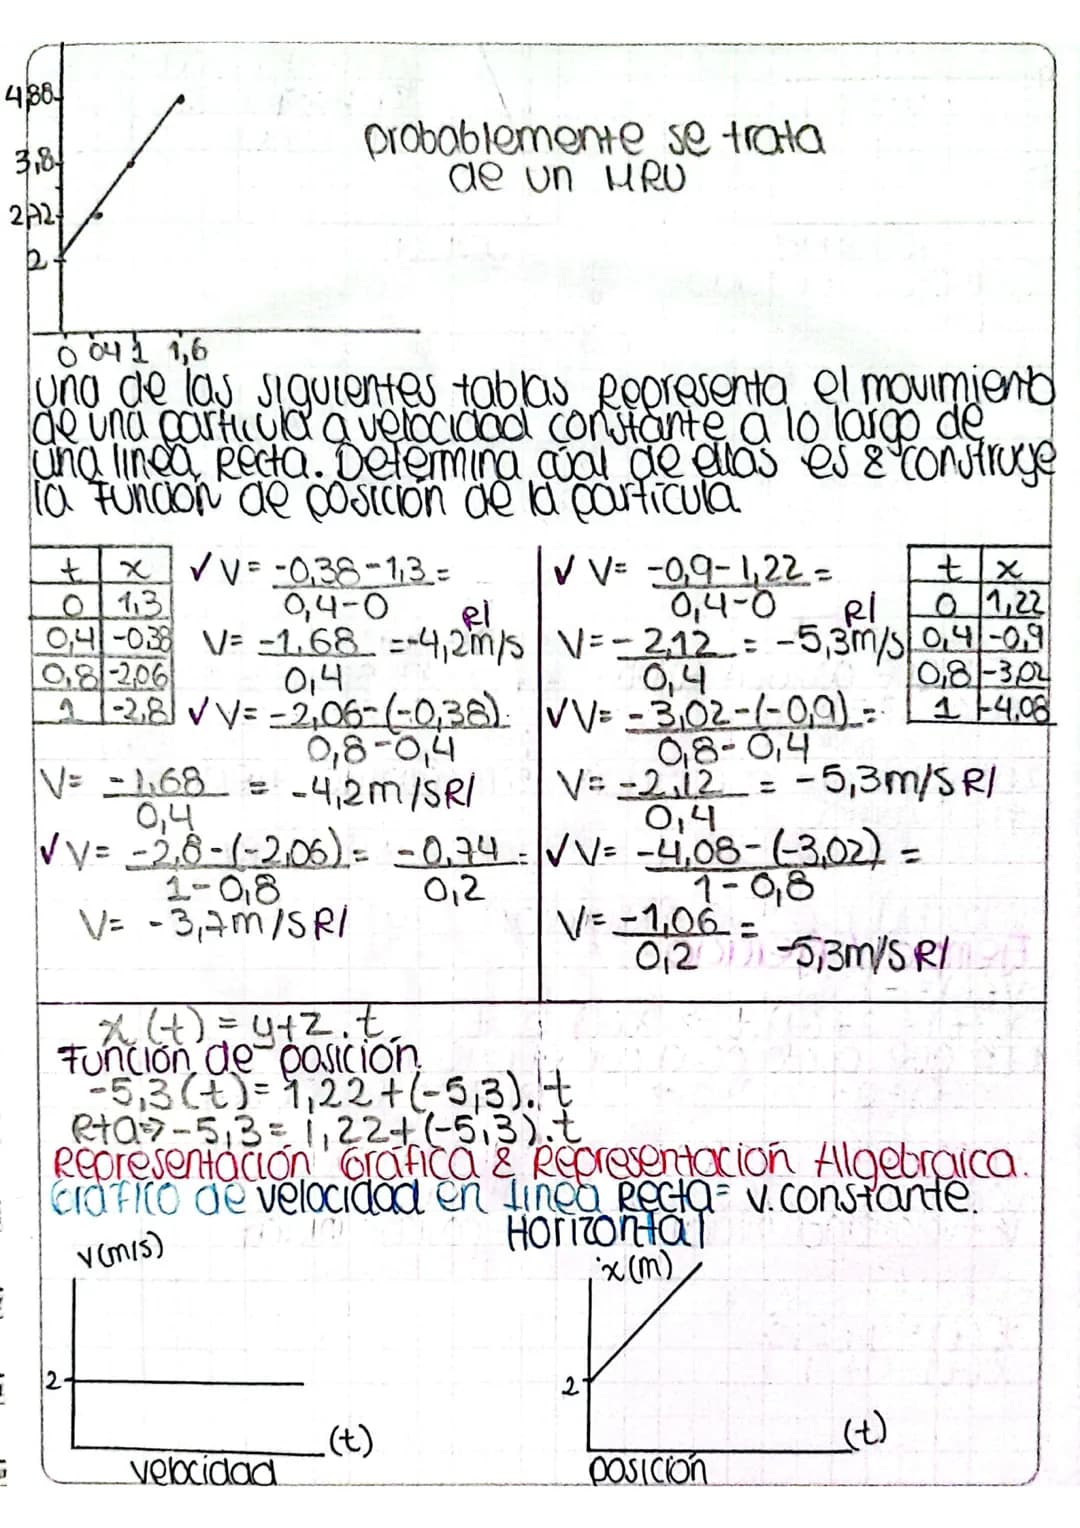 4,88
3,8
2,72
2
0 04 1 1,6
probablemente se trata
de un MRU
una de las siguientes tablas Representa el movimiento
de una particula a velocidad constante a lo largo de
una linea Recta. Determina cual de ellas es & construye
la Función de posición de la partícula
t x
0 1,3
0,4 -0,38
0,8 -2,06
1 -2,8
✓ V= -0,38-1,3 =
0,4-0
V= -1.68 = -4,2m/s R/
0,4
✓ V= -2,06-(-0,38).
0,8-0,4
V= -1,68 = -4,2m/s R/
0,4
✓ V= -2,8-(-2,06) = -0,74 =
1-0,8 0,2
V= -3,7m/s R/
✓ V= -0,9-1,22 =
0,4-0
V= -2,12 = -5,3m/s R/
0,4
✓ V= -3,02-(-0,9) =
0,8-0,4
V= -2,12 = -5,3m/s R/
0,4
✓ V= -4,08-(-3,02) =
1-0,8
V= -1,06 =
0,2 -5,3m/s R/
t x
0 1,22
0,4 -0,9
0,8 -3,02
1 -4,08
x(t)=y+z.t
Función de posición.
-5,3(t)= 1,22+(-5,3).t
Rta⇒ -5,3= 1,22+(-5,3).t
Representación Gráfica & Representación Algebraica.
Gráfico de velocidad en linea Recta= v.constante.
Horizontal
v(m/s)
2
(t)
velocidad
x(m)
2
(t)
posición